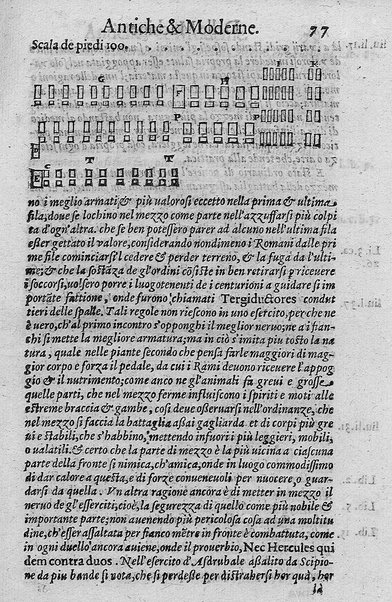 Antiche & Moderne. 77
Scala de piedi 100.
G H I K
F
P P
E C T T
no i meglio armati, & più valorosi eccetto nella prima & ultima
fila, doue se lochino nel mezzo come parte nell'azzuffarsi più colpi
ta d'ogn'altra. che se ben potessero parer ad alcuno nell'ultima fila
esser gettato il valore, considerando nondimeno i Romani dalle pri
me file cominciarsi'l cedere & perder terreno, & la fuga da l'ulti-
me; & che la sostāza de gl'ordini cōsiste in ben retirarsi p riceuere
i soccorsi, volser porre i luogotenenti de i centurioni a guidare si im
portate fattione, onde furono chiamati Tergiductores condut
tieri delle spalle. Tali regole non riescono in uno esercito, perche ne
è vero, ch'al primo incontro s'opponghi il meglior neruo; ne a i fian-
chi si mette la megliore armatura; ma in ciò s'imita piu tosto la na
tura, quale nelle piante secondo che pensa farle maggiori di mag-
gior corpo e forza il pedale, da cui i Rami deuono riceuere l'appog
gio & il nutrimento; come anco ne gl'animali fa greui e grosse
quelle parti, che nel mezzo ferme influiscono i spiriti e moti alle
estreme braccia & gambe, così deue osseruarsi nell'ordinanze, che
nel mezzo si faccia la battaglia assai gagliarda et di corpi più gre
ui e stabili, che s'habbino, mettendo infuori i più leggieri, mobili,
o valatili. & certo che la parte di mezzo è la più vicina a ciascuna
parte della fronte sì nimica, ch'amica, onde in luogo commodissimo
di dar calore a questa, e di forze conueneuoli per nuocere, o guar-
darsi da quella. Vn altra ragione ancora è di metter in mezzo il
neruo de gl'esserciti; cioè, la segurezza di quello come più nobile &
importante parte; non auenendo più pericolosa cosa ad una moltitu
dine, ch'esser assaltata per fianco mētre in fronte è combattuta, come
in ogni duello ancora auiene, onde il prouerbio, Nec Hercules qui
dem contra duos. Nell'esercito d'Asdrubale assalito da Scipio-
ne da piu bande si vota, che si perdesse per distraherssi hor quà, hor
là